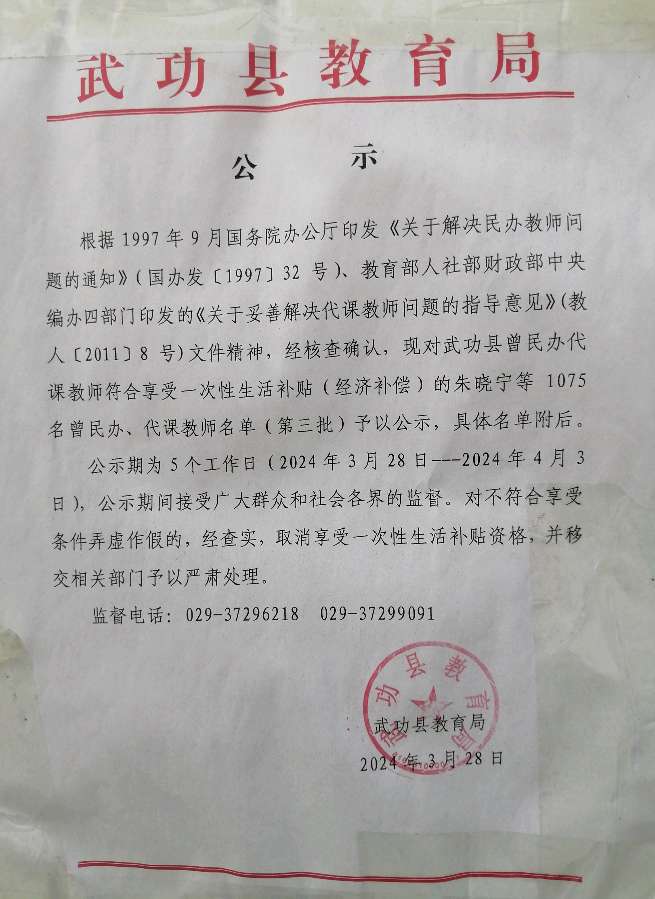 武功县教育局
公示
根据 1997 年 9 月国务院办公厅印发《关于解决民办教师问
题的通知》(国办发〔1997〕32 号)、教育部人社部财政部中央
编办四部门印发的《关于妥善解决代课教师问题的指导意见》(教
人〔2011〕8 号)文件精神，经核查确认，现对武功县曾民办代
课教师符合享受一次性生活补贴（经济补偿）的朱晓宁等 1075
名曾民办、代课教师名单（第三批）予以公示，具体名单附后。
公示期为 5 个工作日（2024 年 3 月 28 日---2024 年 4 月 3
日），公示期间接受广大群众和社会各界的监督。对不符合享受
条件弄虚作假的，经查实，取消享受一次性生活补贴资格，并移
交相关部门予以严肃处理。
监督电话：029-37296218 029-37299091
武功县教育局
武功县教育局
2024 年 3 月 28 日